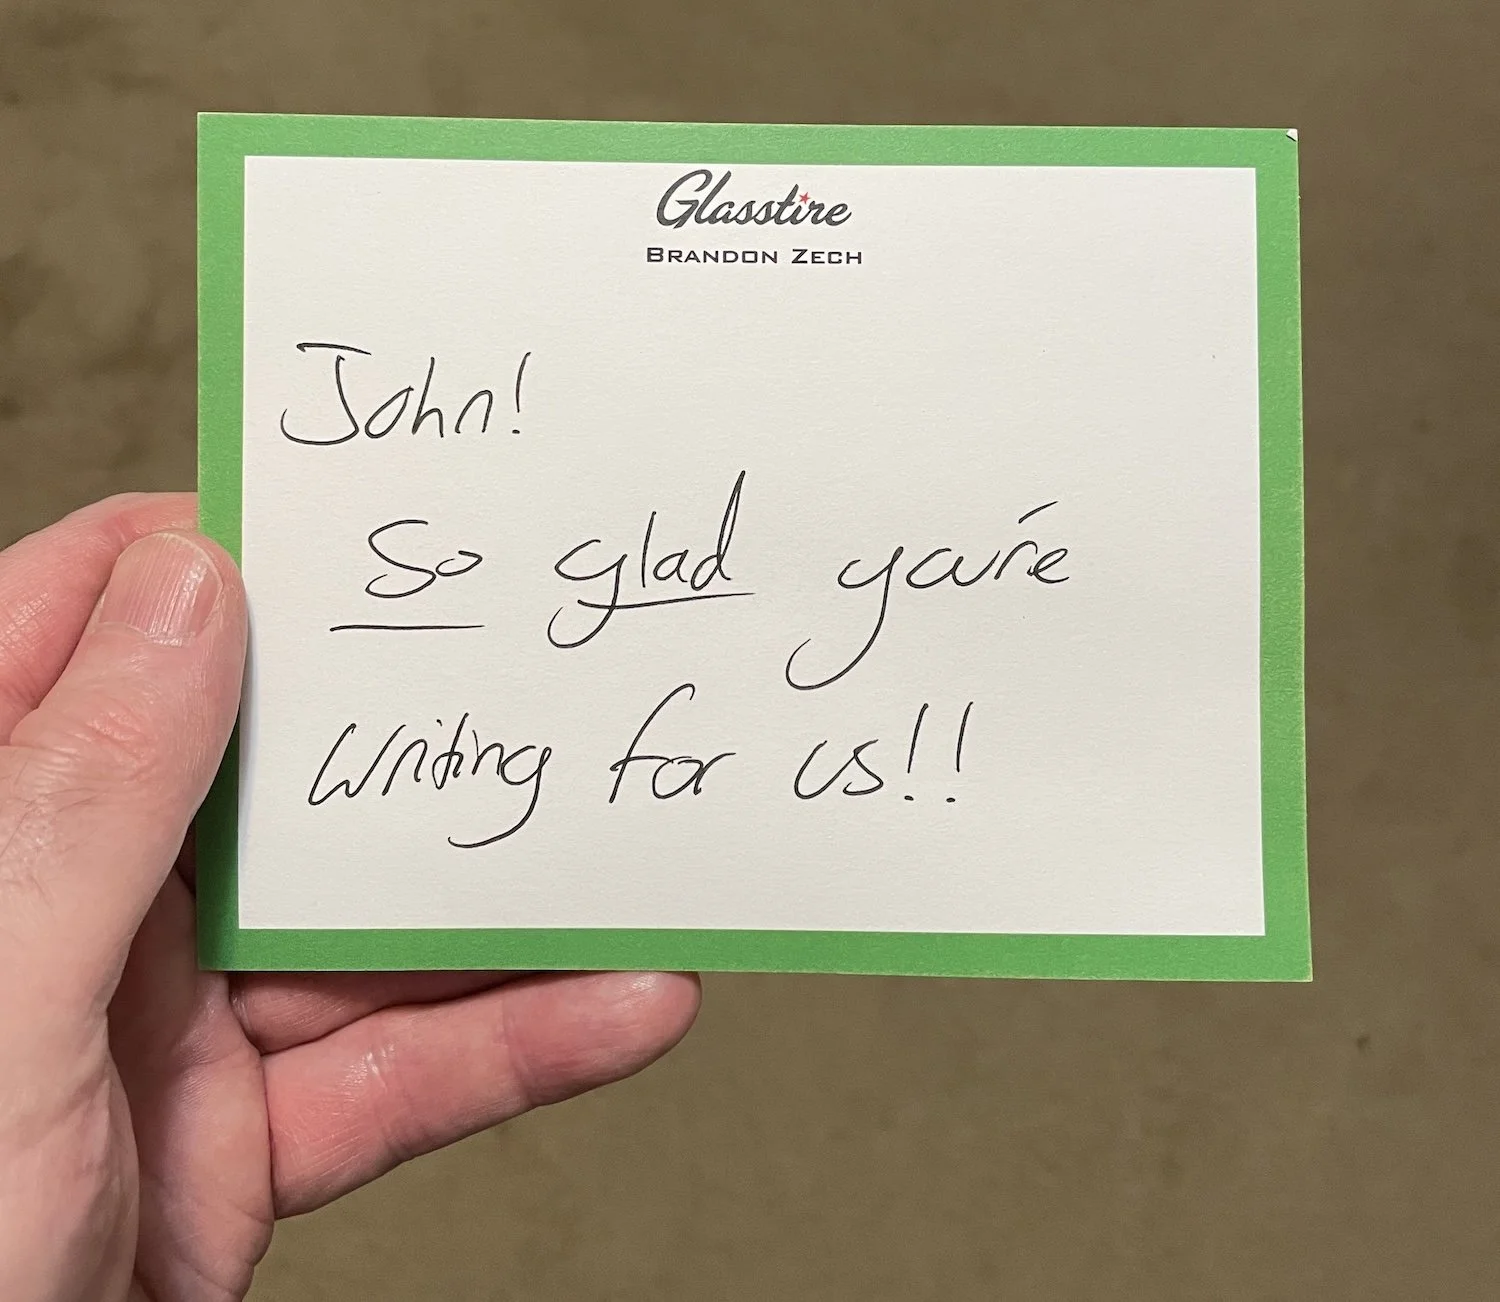 Glasstire
BRANDON ZECH
John!
So glad you're
writing for us!!